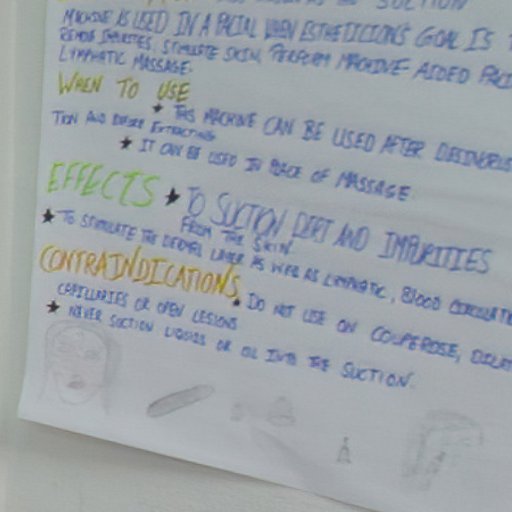 SUCTION
MACHINE IS USED IN A FACIAL WHEN ESTHETICIONS GOAL IS
REMOVE IMPURITIES, STIMULATE SKIN, PERFORM MACHINE AIDED
LYMPHATIC MASSAGE.
WHEN TO USE
★ THIS MACHINE CAN BE USED AFTER
TION AND BEFORE EXTRACTING
★ IT CAN BE USED IN PLACE OF MASSAGE
EFFECTS ★ TO SUCTION DIRT AND IMPURITIES
FROM THE SKIN
★ TO STIMULATE THE DERMAL LAYER AS WELL AS LYMPHATIC, BLOOD
CONTRAINDICATIONS ★ DO NOT USE ON COUPEROSE,
CAPILLARIES OR OPEN LESIONS
★ NEVER SUCTION LIQUIDS OR OIL INTO THE SUCTION